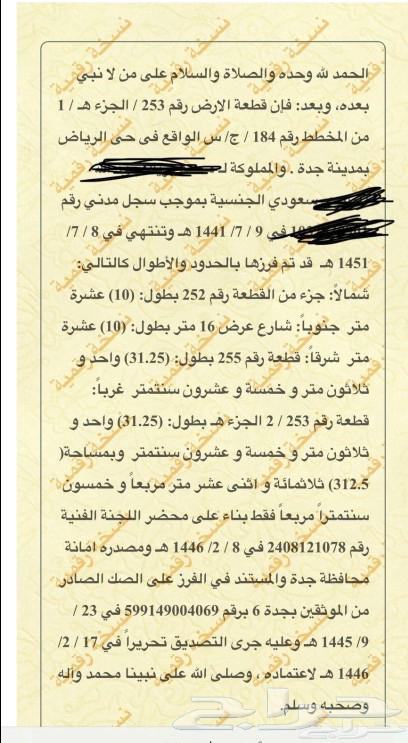 الحمد لله وحده والصلاة والسلام على من لا نبي
بعده، وبعد: فإن قطعة الارض رقم 253 / الجزء هـ / 1
من المخطط رقم 184 / ج/ س الواقع في حى الرياض
بمدينة جدة . والمملوكة لـ
سعودي الجنسية بموجب سجل مدني رقم
في 9 / 7/ 1441 هـ وتنتهي في 8 / 7/
1451 هـ قد تم فرزها بالحدود والأطوال كالتالي:
شمالاً: جزء من القطعة رقم 252 بطول: (10) عشرة
متر جنوباً: شارع عرض 16 متر بطول: (10) عشرة
متر شرقاً: قطعة رقم 255 بطول: (31.25) واحد و
ثلاثون متر و خمسة و عشرون سنتمتر غرباً:
قطعة رقم 253 / 2 الجزء هـ بطول: (31.25) واحد و
ثلاثون متر و خمسة و عشرون سنتمتر وبمساحة(
312.5) ثلاثمائة و اثنى عشر متر مربعاً و خمسون
سنتمتراً مربعاً فقط بناء على محضر اللجنة الفنية
رقم 2408121078 في 8 / 2/ 1446 هـ ومصدره امانة
محافظة جدة والمستند في الفرز على الصك الصادر
من الموثقين بجدة 6 برقم 599149004069 في 23 /
9/ 1445 هـ وعليه جرى التصديق تحريراً في 17 / 2/
1446 هـ لاعتماده ، وصلى الله على نبينا محمد وآله
وصحبه وسلم.
نسخة رقمية
حراج